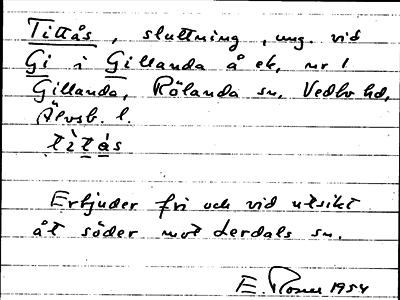 Tittås, sluttning, ung. vid
Gi i Gillanda å ek, nr 1
Gillanda, Rölanda sn, Vedbo hd,
Älvsb. l.
tìtás
Erbjuder fri och vid utsikt
åt söder mot Lerdals sn.
E. 1954